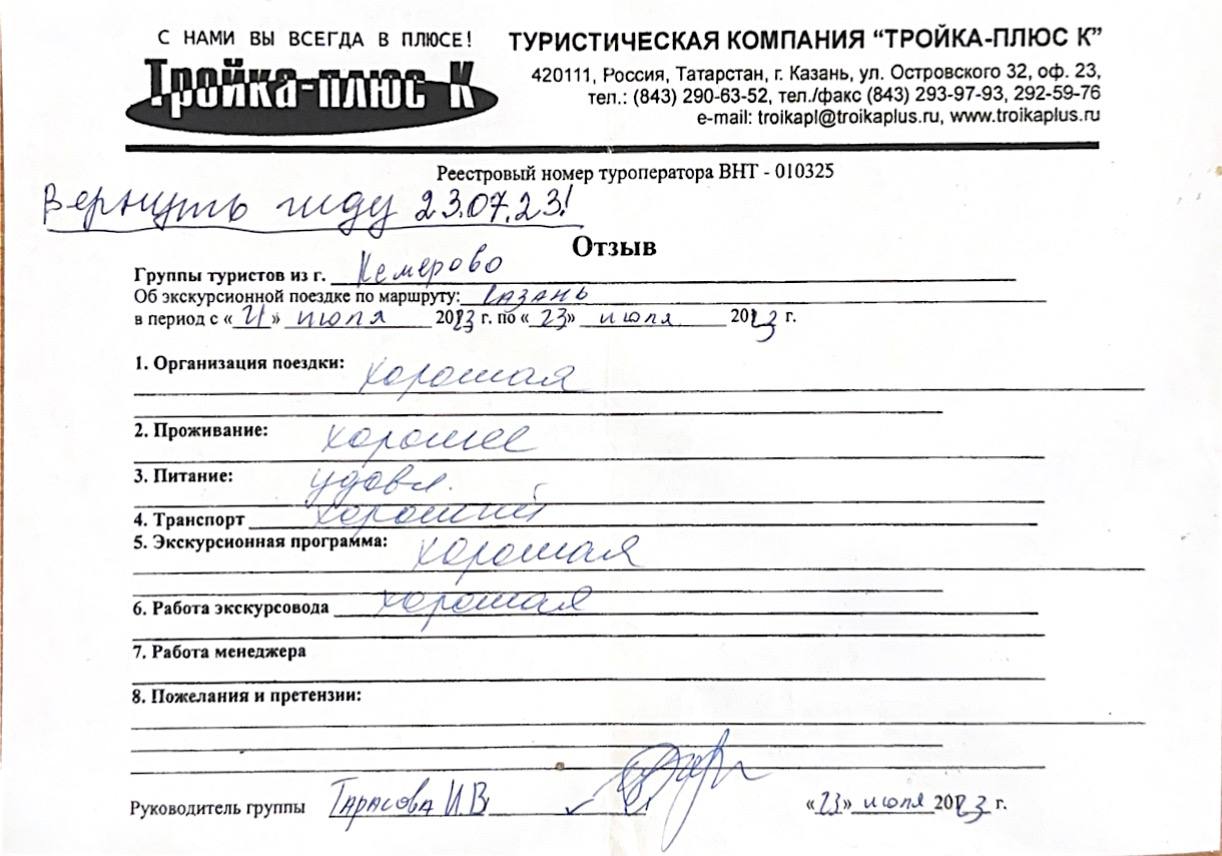 С НАМИ ВЫ ВСЕГДА В ПЛЮСЕ!
Тройка-плюс К
ТУРИСТИЧЕСКАЯ КОМПАНИЯ “ТРОЙКА-ПЛЮС К”
420111, Россия, Татарстан, г. Казань, ул. Островского 32, оф. 23,
тел.: (843) 290-63-52, тел./факс (843) 293-97-93, 292-59-76
e-mail: troikapl@troikaplus.ru, www.troikaplus.ru
Реестровый номер туроператора ВНТ - 010325
Вернуть гиду 23.07.23!
Отзыв
Группы туристов из г. Кемерово
Об экскурсионной поездке по маршруту: Казань
в период с «21» июля 2023 г. по «23» июля 2023 г.
1. Организация поездки: хорошая
2. Проживание: хорошее
3. Питание: удовл.
4. Транспорт хороший
5. Экскурсионная программа: хорошая
6. Работа экскурсовода хорошая
7. Работа менеджера
8. Пожелания и претензии:
Руководитель группы Тарасова И.В. «23» июля 2023 г.